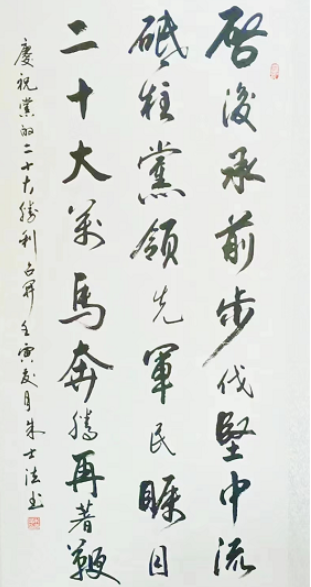 啓後承前步伐堅中流
砥柱黨領先軍民矚目
二十大萬馬奔騰再著鞭
慶祝黨的二十大勝利召開 壬寅夏月朱士法书